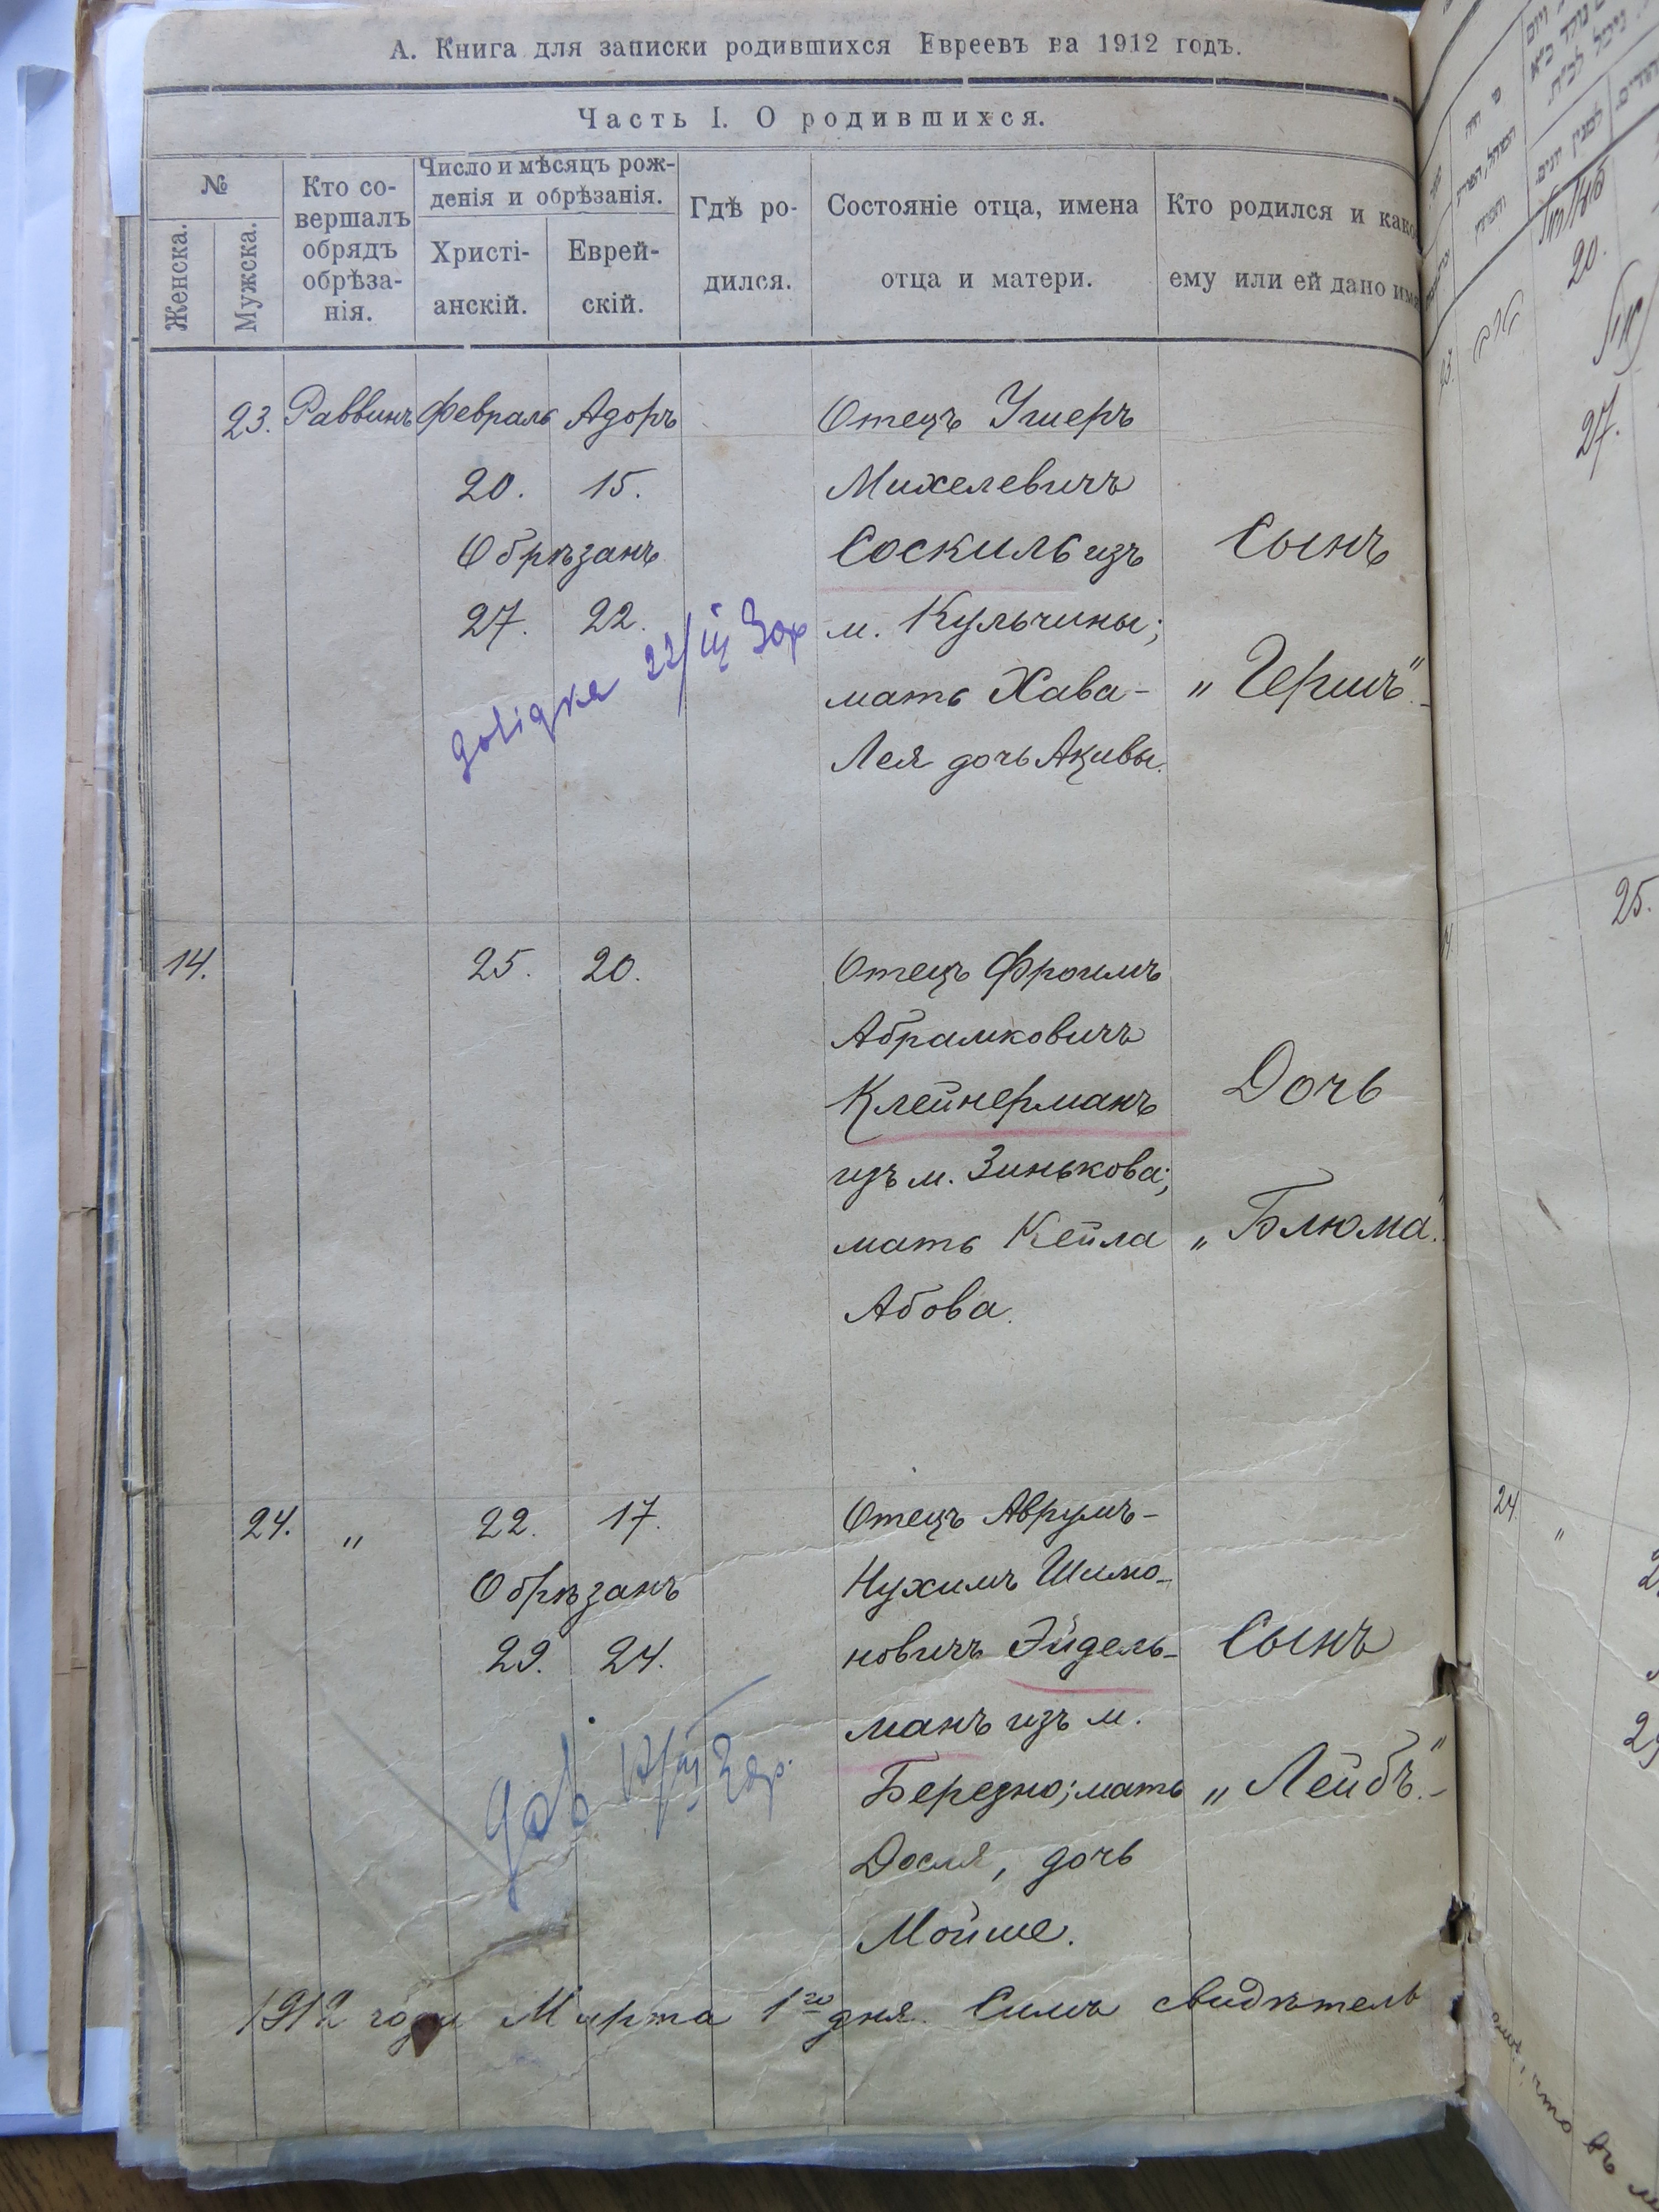 А. Книга для записки родившихся Евреевъ на 1912 годъ.
Часть I. О родившихся.
№
Женска.
Мужска.
Кто со-
вершалъ
обрядъ
обрѣза-
нія.
Число и мѣсяцъ рож-
денія и обрѣзанія.
Христі-
анскій.
Еврей-
скій.
Гдѣ ро-
дился.
Состояніе отца, имена
отца и матери.
Кто родился и како
ему или ей дано имя
23. Раввинъ Февраль Адоръ Отецъ Ушеръ
20. 15. Михелевичъ
Обрѣзанъ Соскиль изъ Сынъ
27. 22. м. Кульчины;
22/III
мать Хава- „Гершъ“.
Лея дочь Акивы.
14. 25. 20. Отецъ Фроимъ
Абрамковичъ
Клейнерманъ Дочь
изъ м. Зинькова;
мать Кейла „Блюма“.
Абова.
24. „ 22. 17. Отецъ Аврумъ-
Обрѣзанъ Нухимъ Шимо-
29. 24. новичъ Эйдель- Сынъ
манъ изъ м.
Березно; мать „Лейбъ“.
Дося, дочь
Мойше.
1912 года Марта 1го дня. Симъ свидѣтель
20.
27.
25.
24. „